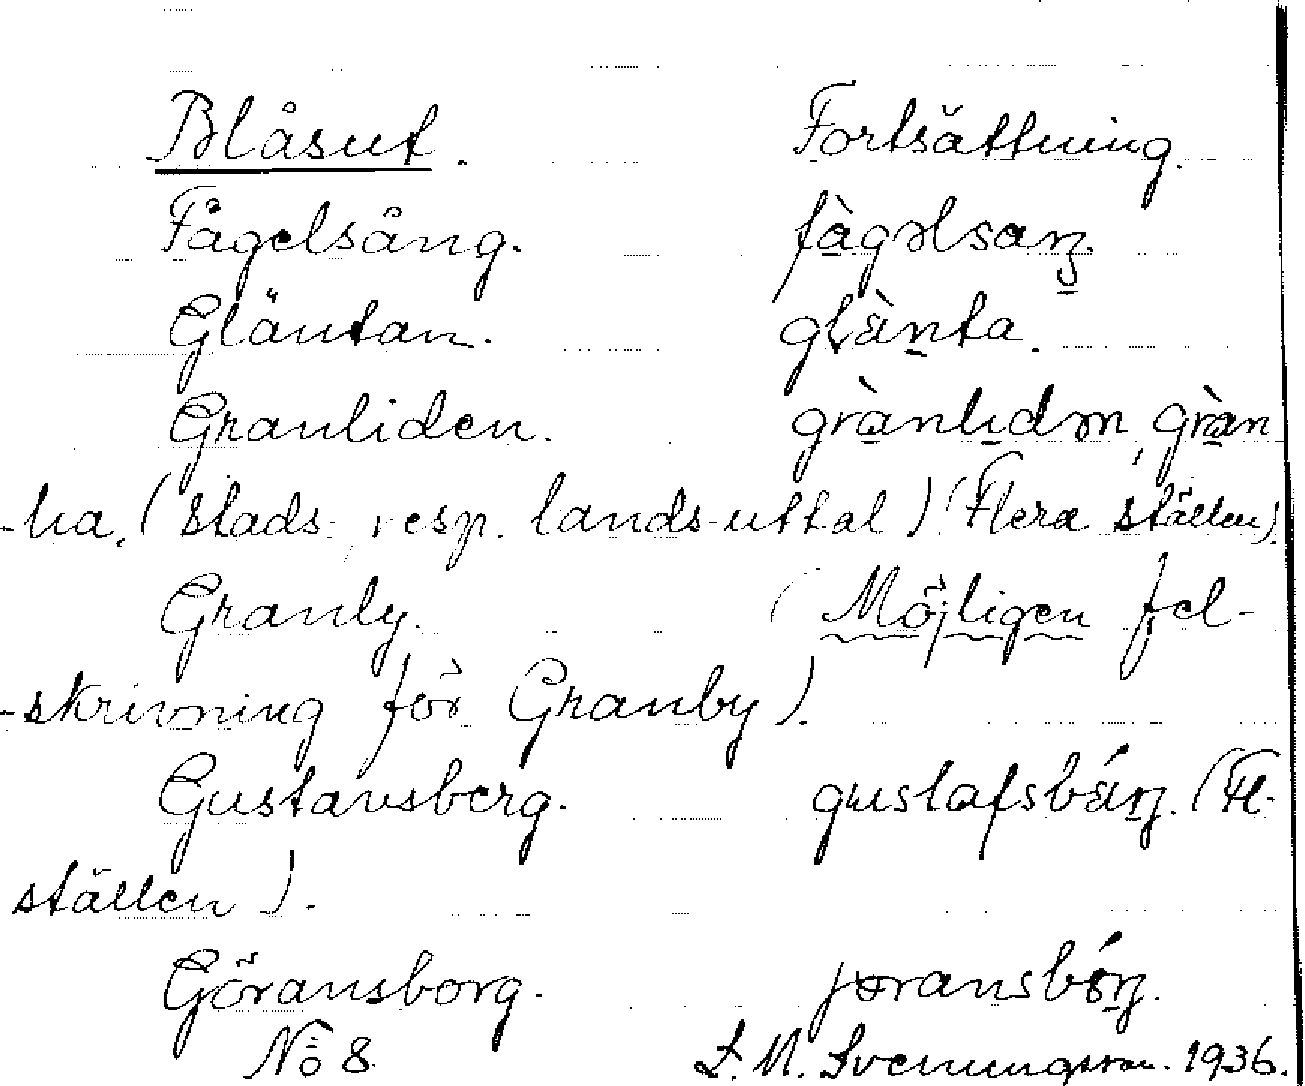 Blåsut. Fortsättning.
Fågelsång. fàgəlsaŋ.
Gläntan. glànta.
Granliden. grànlidən, gràn
-lia, (stads-, resp. lands-uttal) (Flera ställen).
Granly. (Möjligen fel-
-skrivning för Granby).
Gustavsberg. gustafsbárj. (Fl.
ställen).
Göransborg. jöransbórj.
No 8. L. M. Svenungsson. 1936.